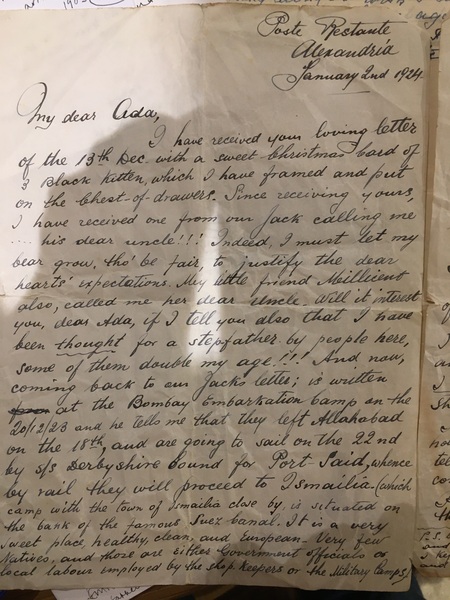 Poste Restante
Alexandria
January 2nd 1924
My dear Ada,
I have received your loving letter
of the 13th Dec. with a sweet Christmas Card of
3 Black Kitten, which I have framed and put
on the Chest-of-drawers. Since receiving yours,
I have received one from our Jack calling me
... his dear uncle!!! Indeed, I must let my
bear grow, tho' be fair, to justify the dear
hearts' expectations. My little friend Millicent
also, called me her dear Uncle. Will it interest
you, dear Ada, if I tell you also that I have
been thought for a stepfather by people here,
some of them double my age!!! And now,
coming back to our Jacks letter; is written
at the Bombay Embarkation Camp on the
20/12/23 and he tells me that they left Allahabad
on the 18th, and are going to sail on the 22nd
by S/S Derbyshire bound for Port-Said, whence
by rail they will proceed to Ismailia-(which
camp with the town of Ismailia close by, is situated on
the bank of the famous Suez Canal. It is a very
sweet place, healthy, clean, and European- Very few
Natives, and those are either Government officials or
local labour employed by the shop keepers or the Military Camps,